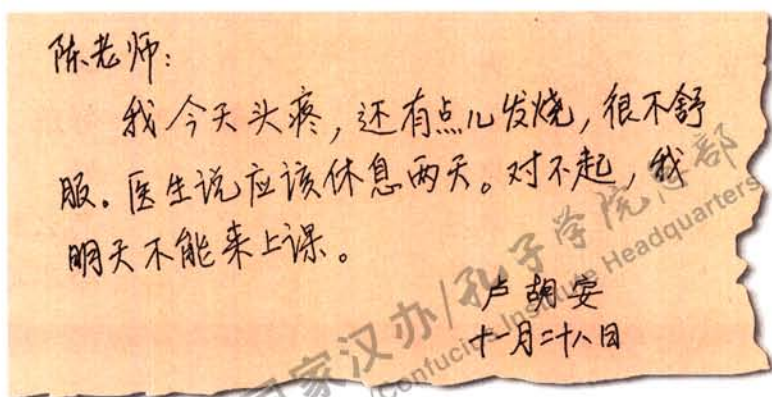 陈老师:
我今天头疼,还有点儿发烧,很不舒
服。医生说应该休息两天。对不起,我
明天不能来上课。
卢胡安
十一月二十八日
国家汉办/孔子学院总部
Confucius Institute Headquarters